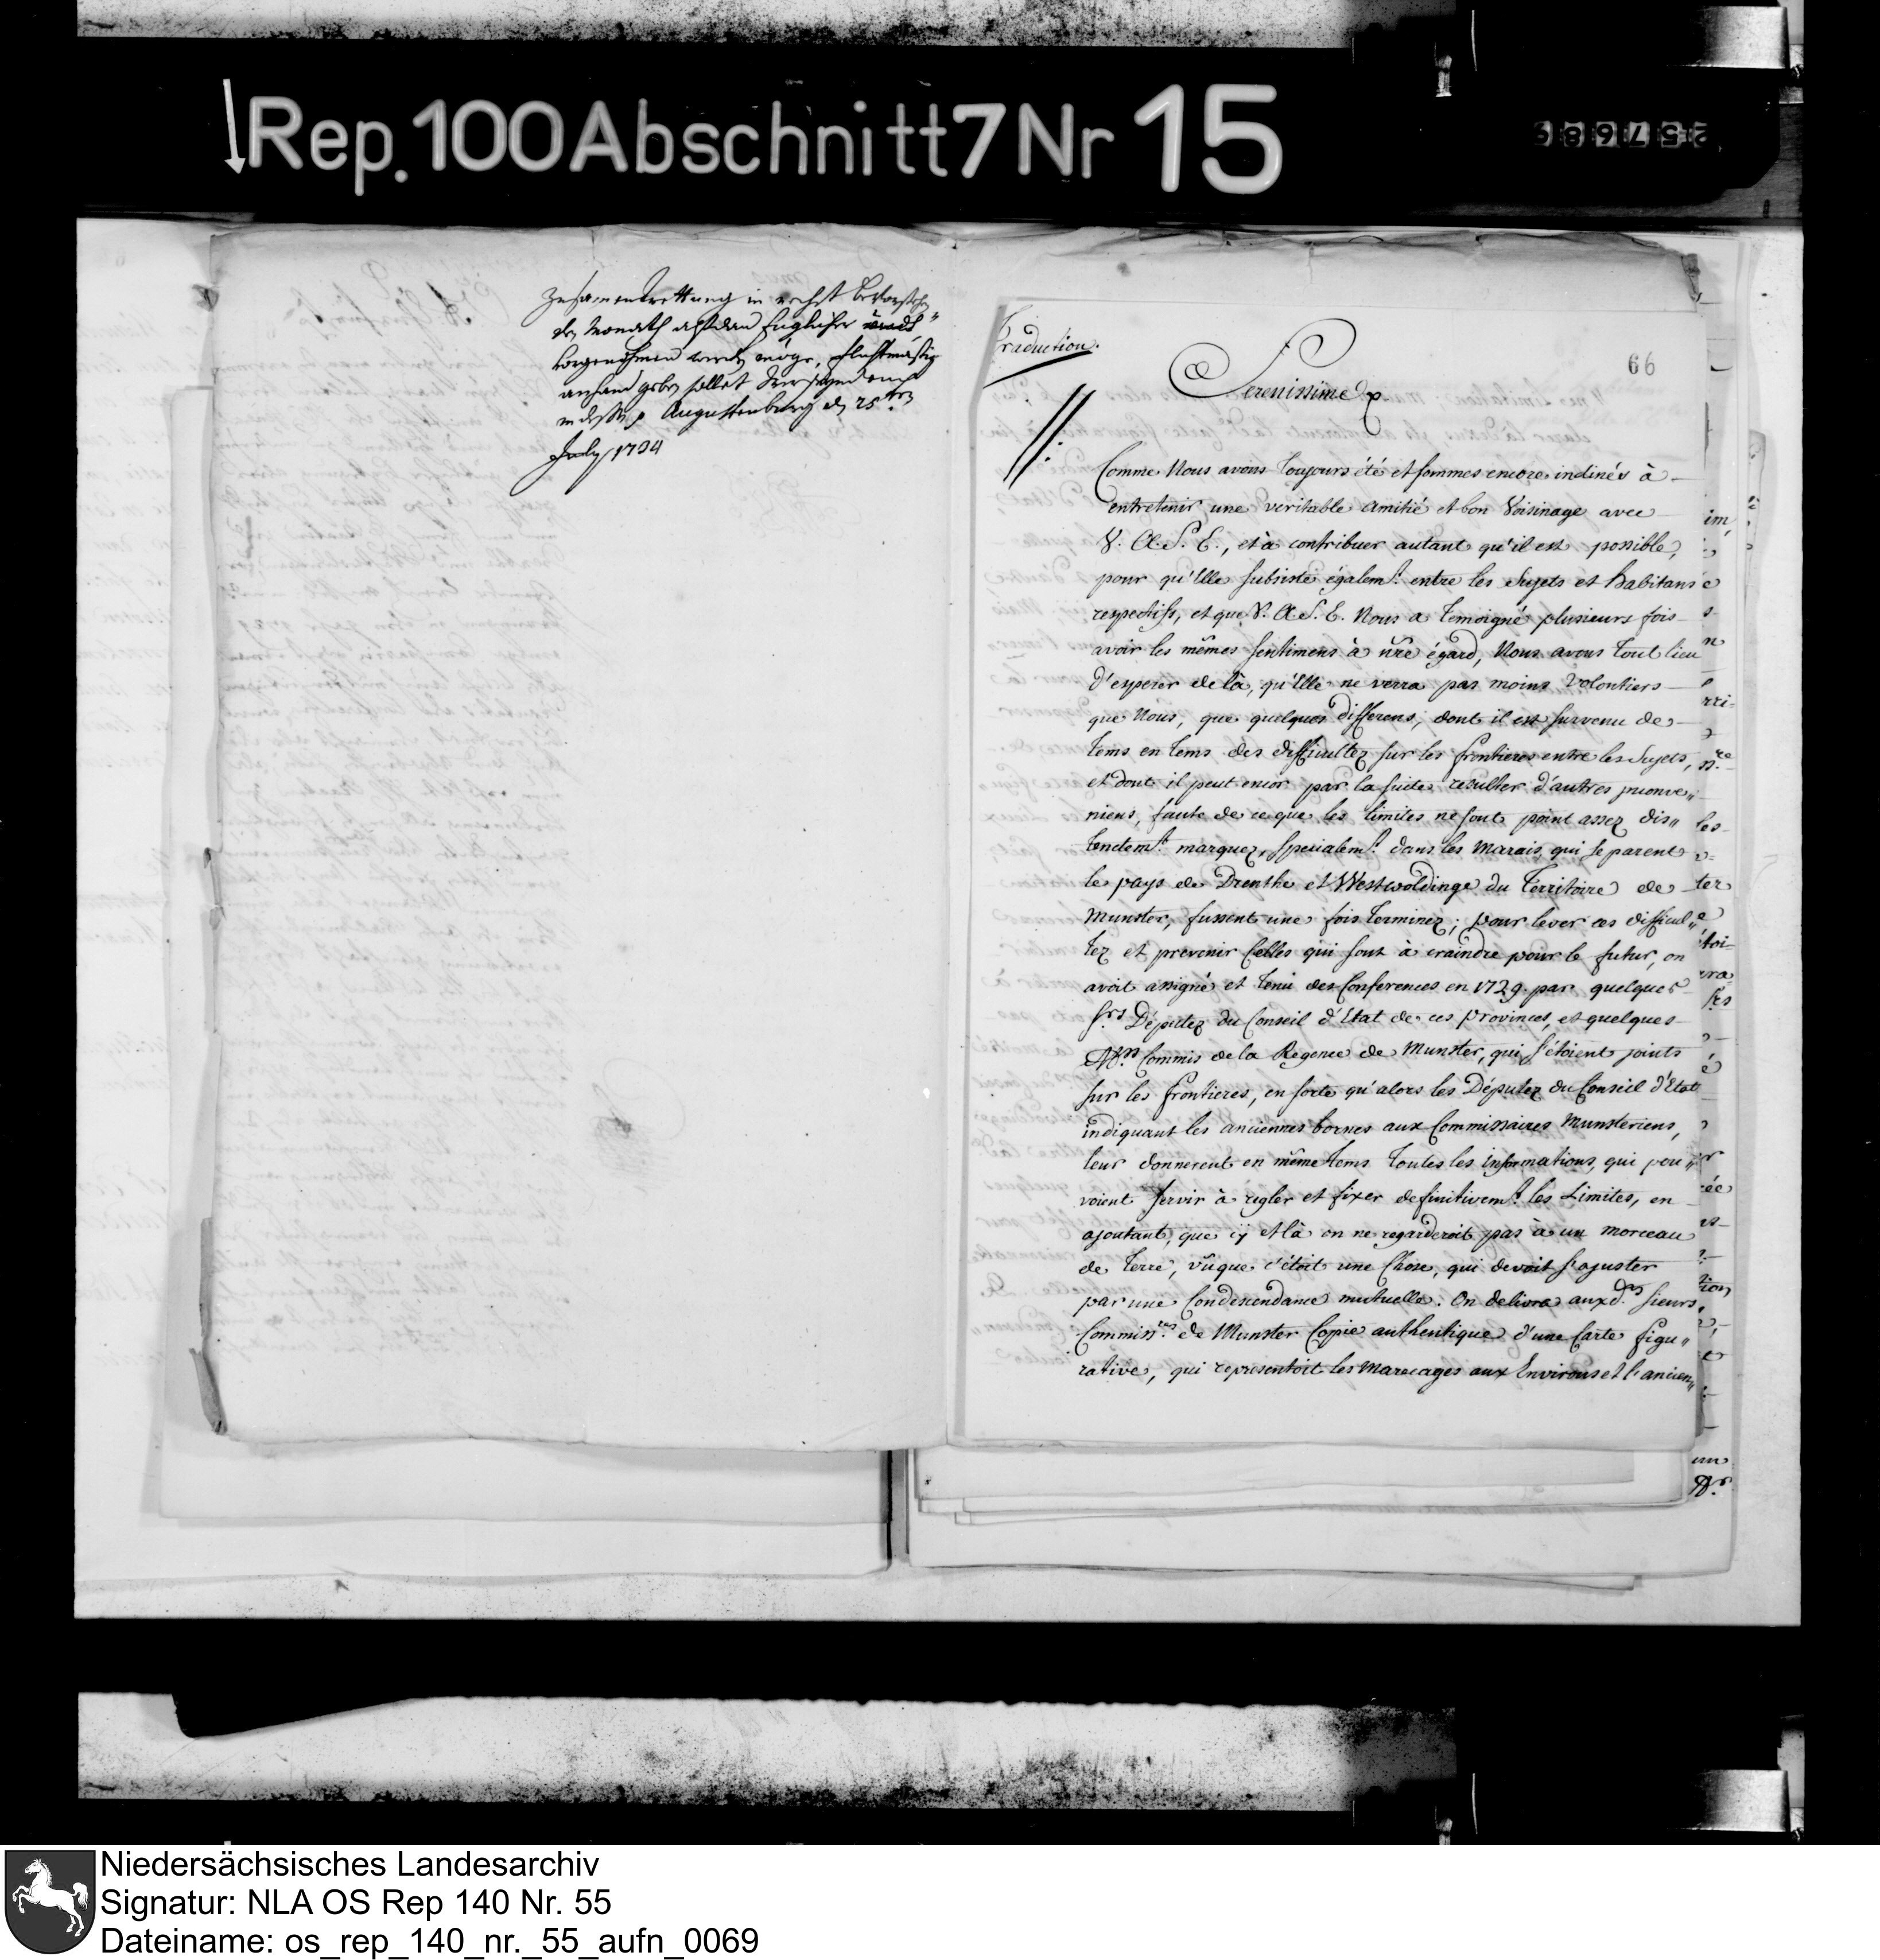 Rep. 100 Abschnitt 7 Nr 15
257689
Zusamentrettung in nechst bevorstehen„
den Monath
vorgenohmen werden möge,
anhand geben sollet
indeßen p Augustenburg den 25ten
July 1734
Traduction.
66
Serenissime p
Comme Nous avons toujours été et sommes encore inclinés à
entretenir une veritable amitié et bon Voisinage avec
V. A. S. E., et à contribuer autant qu'il est possible,
pour qu'Elle subsiste égalemt. entre les Sujets et habitans
respectifs, et que V. A. S. E. Nous a temoigné plusieurs fois
avoir les mêmes sentimens à nre égard, Nous avons tout lieu
d'esperer de là, qu'Elle ne verra pas moins volontiers
que Nous, que quelques differens, dont il est survenu de
tems en tems des difficultez sur les frontieres entre les Sujets,
et dont il peut encor par la suite resulter d'autres inconve„
niens, faute de ce que les limites ne sont point assez dis„
tinctemt. marquez, specialemt. dans les Marais, qui separent
le pays de Drenthe et Westwoldinge du Territoire de
Munster, fussent une fois terminez; pour lever ces difficul„
tez et prevenir Celles qui sont à craindre pour le futur, on
avoit assigné et tenu des Conferences en 1729. par quelques
Srs. Députez du Conseil d'Etat de ces Provinces, et quelques
Mrs. Commis de la Regence de Munster, qui s'étoient joints
sur les frontieres, en sorte qu'alors les Députez du Conseil d'Etat
indiquant les anciennes bornes aux Commissaires Munsteriens,
leur donnerent en même tems toutes les informations, qui pou„
voient servir à regler et fixer definitivemt. les Limites, en
ajoutant, que çy et là on ne regarderoit pas à un morceau
de Terre, vûque c'étoit une Chose, qui devoit s'ajuster
par une Condescendance mutuelle. On delivra auxds. Sieurs
Commissres. de Munster Copie authentique d'une Carte figu„
rative, qui representoit les Marecages aux Environs et l'ancien„
Niedersächsisches Landesarchiv
Signatur: NLA OS Rep 140 Nr. 55
Dateiname: os_rep_140_nr._55_aufn_0069